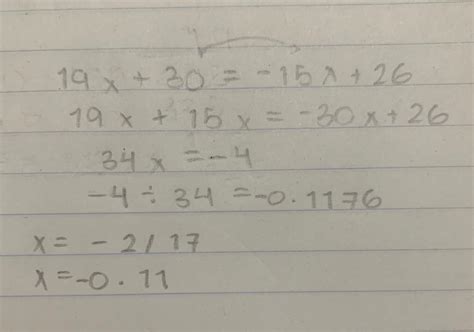 19x + 30 = -15x + 26
19x + 15x = -30x + 26
34x = -4
-4 ÷ 34 = -0.1176
x = -2/17
x = -0.11